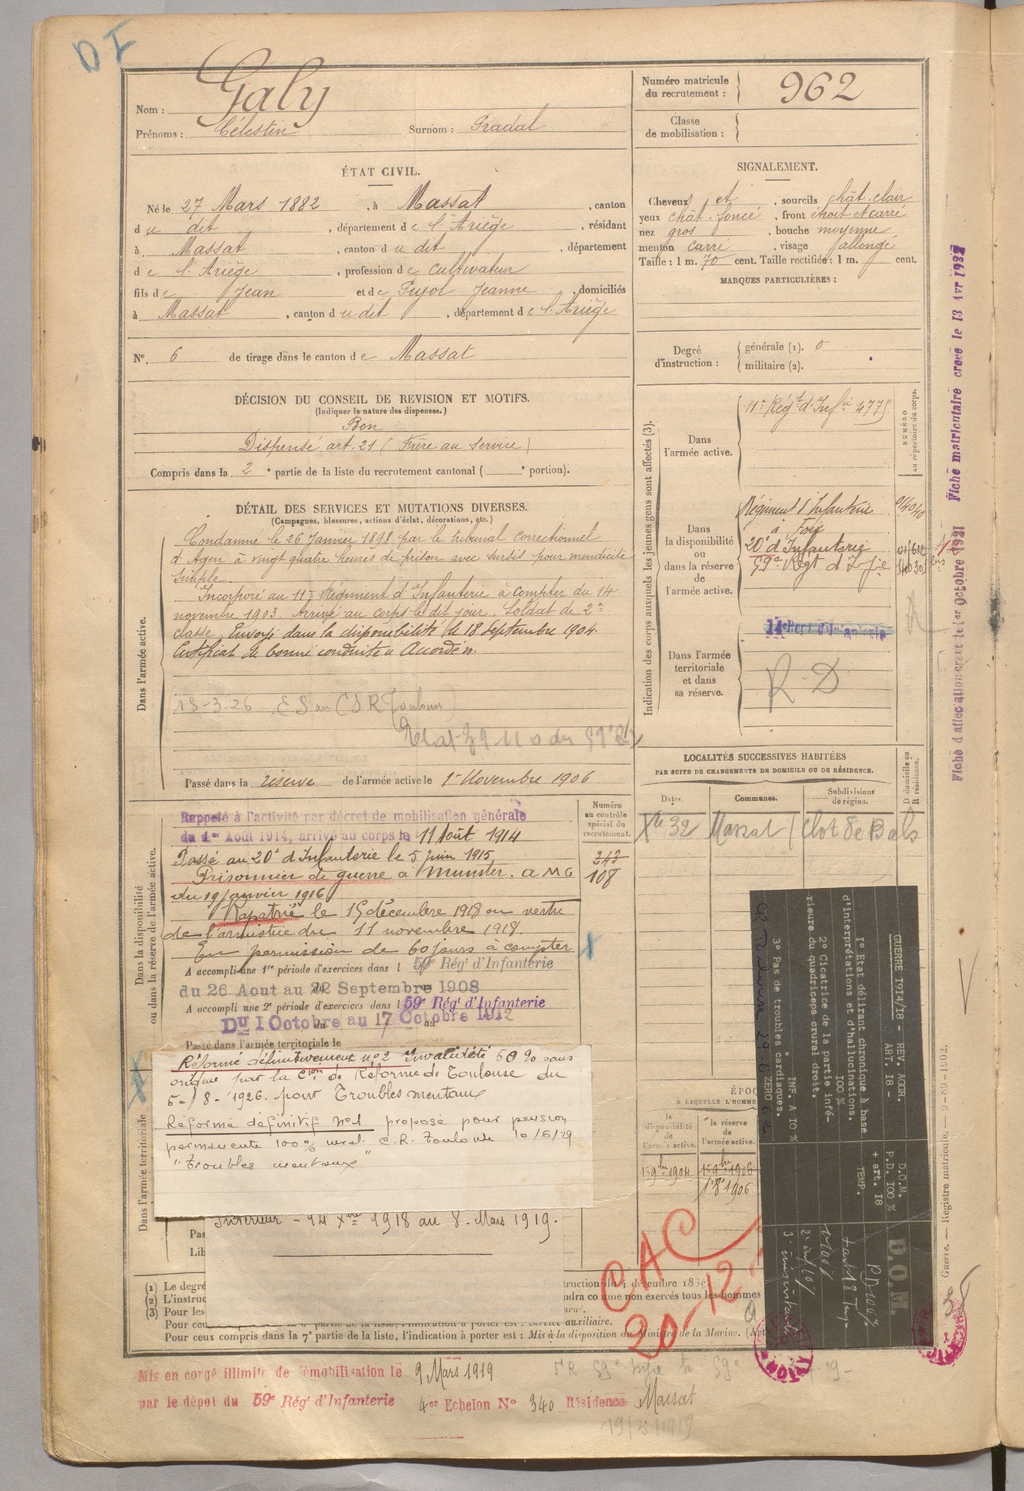 D I
Nom : Galy
Prénoms : Célestin Surnom : Pradal
Numéro matricule du recrutement : 962
Classe de mobilisation :
ÉTAT CIVIL.
Né le 27 Mars 1882, à Massat, canton
du dit, département de l'Ariège, résidant
à Massat, canton du dit, département
de l'Ariège, profession de cultivateur
fils de Jean et de Pujol Jeanne, domiciliés
à Massat, canton du dit, département de l'Ariège
N° 6 de tirage dans le canton de Massat
SIGNALEMENT.
Cheveux et, sourcils chât. clair
yeux chât. foncé, front étroit et carré
nez gros, bouche moyenne
menton carré, visage allongé
Taille : 1 m. 70 cent. Taille rectifiée : 1 m. cent.
MARQUES PARTICULIÈRES :
Degré d'instruction : générale (1). 0
militaire (2).
DÉCISION DU CONSEIL DE REVISION ET MOTIFS.
(Indiquer la nature des dispenses.)
Bon
Dispensé art. 21 (Frère au service)
Compris dans la 2e partie de la liste du recrutement cantonal ( e portion).
DÉTAIL DES SERVICES ET MUTATIONS DIVERSES.
(Campagnes, blessures, actions d'éclat, décorations, etc.)
Dans l'armée active.
Condamné le 26 Janvier 1898 par le tribunal correctionnel
d'Agen à vingt quatre heures de prison avec sursis pour mendicité
simple.
Incorporé au 11e Régiment d'Infanterie à compter du 14
novembre 1903. Arrivé au corps le dit jour. Soldat de 2e
classe. Envoyé dans la disponibilité le 18 Septembre 1904.
Certificat de bonne conduite « Accordé ».
18-3-26
Passé dans la réserve de l'armée active le 1er Novembre 1906
Indication des corps auxquels les jeunes gens sont affectés (3).
NUMÉRO au répertoire du corps.
Dans l'armée active.
11e Régt d'Infie 4775
Dans la disponibilité ou dans la réserve de l'armée active.
Régiment d'Infanterie
à Foix
20e d'Infanterie
59e Régt d'Infie
Dans l'armée territoriale et dans sa réserve.
R. D
LOCALITÉS SUCCESSIVES HABITÉES
PAR SUITE DE CHANGEMENTS DE DOMICILE OU DE RÉSIDENCE.
Dates. Communes. Subdivisions de région. D domicile ou R résidence.
Xbre 32 Massat
Dans la disponibilité ou dans la réserve de l'armée active.
Numéro au contrôle spécial du recrutement.
343
108
Rappelé à l'activité par décret de mobilisation générale
du 1er Août 1914, arrivé au corps le 11 Août 1914
Passé au 20e d'Infanterie le 5 Juin 1915
Prisonnier de guerre à Munster. a MG
du 19 janvier 1916
Rapatrié le 15 décembre 1918 en vertu
de l'armistice du 11 novembre 1918.
En permission de 60 jours à compter
A accompli une 1re période d'exercices dans l 59e Régt d'Infanterie
du 26 Aout au 22 Septembre 1908
A accompli une 2e période d'exercices dans l 59e Régt d'Infanterie
Du 1 Octobre au 17 Octobre 1912
Passé dans l'armée territoriale le
Dans l'armée territoriale
Réformé définitivement n°2 Invalidité 50% sans
origine par la Cion de Réforme de Toulouse du
5-8-1926. pour Troubles mentaux
Réforme définitif n°1 proposé pour pension
permanente 100% C.R. Toulouse 10/5/29
"Troubles mentaux"
Intérieur - 14 Xbre 1918 au 8 Mars 1919.
ÉPO
A LAQUELLE L'HOMME
la disponibilité de l'armée active.
la réserve de l'armée active.
1er 9bre 1904
1er 9bre 1906
GUERRE 1914/18 - REV. AGGR. D.O.M.
ART. 18 - P.D. 100 % + art. 18
1° Etat délirant chronique à base d'interprétations et d'hallucinations. TEMP.
100 %
2° Cicatrice de la partie inférieure du quadriceps crural droit. INF. A 10 %
3° Pas de troubles cardiaques. ZERO
D.O.M
P.D. 100%
CAC
20-12
(1) Le degré
(2) L'instruc
(3) Pour les
Pour ceux
Pour ceux compris dans la 7e partie de la liste, l'indication à porter est : Mis à la disposition du Ministre de la Marine.
Mis en congé illimité de démobilisation le 9 Mars 1919
par le dépôt du 59e Régt d'Infanterie 4er Echelon N° 340 Résidence Massat
Fiche d'affectation créée le 1er Octobre 1921 Fiche matriculaire créée le 13 Avr 1922
Guerre. — Registre matricule. — 9-89-1902.